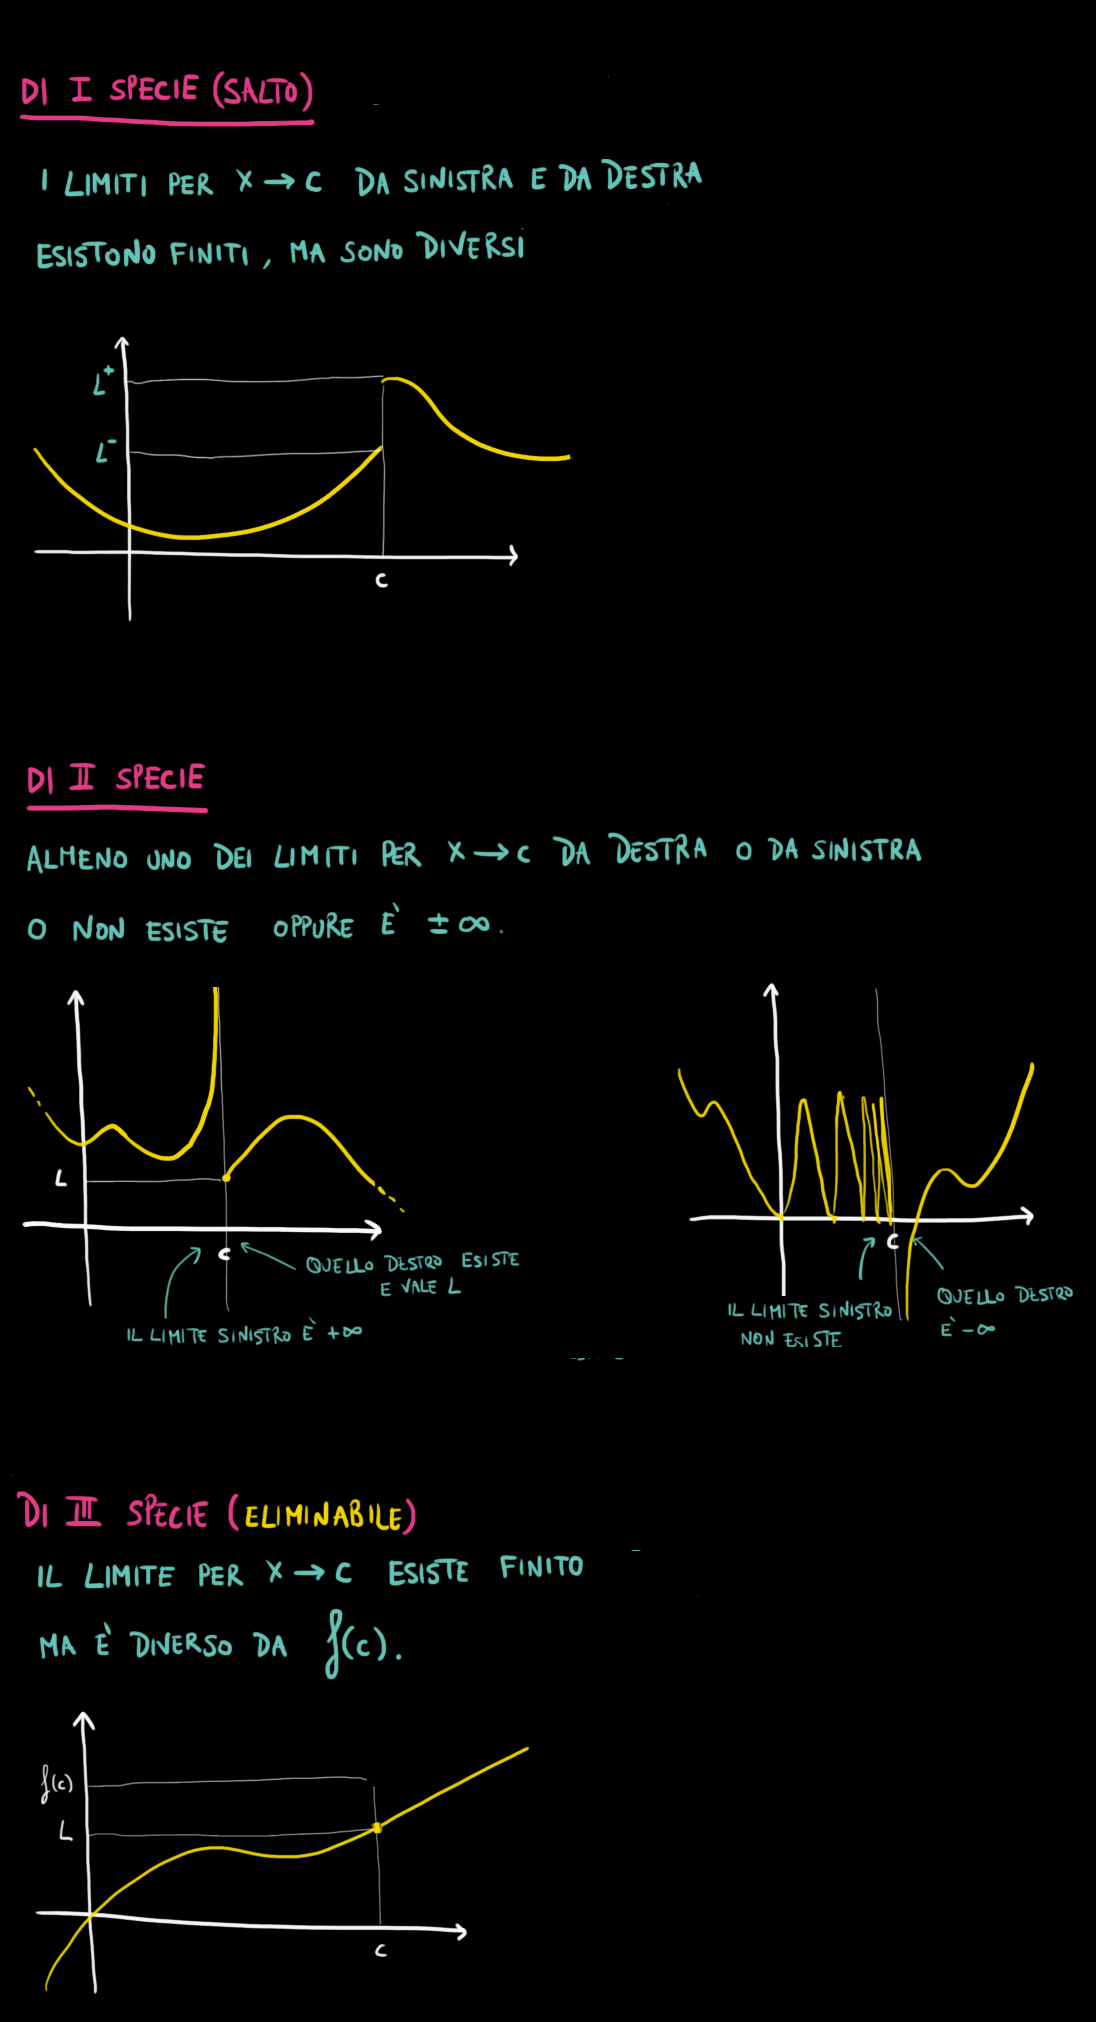 DI I SPECIE (SALTO)
I LIMITI PER X → C DA SINISTRA E DA DESTRA
ESISTONO FINITI, MA SONO DIVERSI
L⁺
L⁻
C
DI II SPECIE
ALMENO UNO DEI LIMITI PER X → C DA DESTRA O DA SINISTRA
O NON ESISTE OPPURE È ±∞.
L
C
QUELLO DESTRO ESISTE
E VALE L
IL LIMITE SINISTRO È +∞
C
IL LIMITE SINISTRO
NON ESISTE
QUELLO DESTRO
È -∞
DI III SPECIE (ELIMINABILE)
IL LIMITE PER X → C ESISTE FINITO
MA È DIVERSO DA f(c).
f(c)
L
C